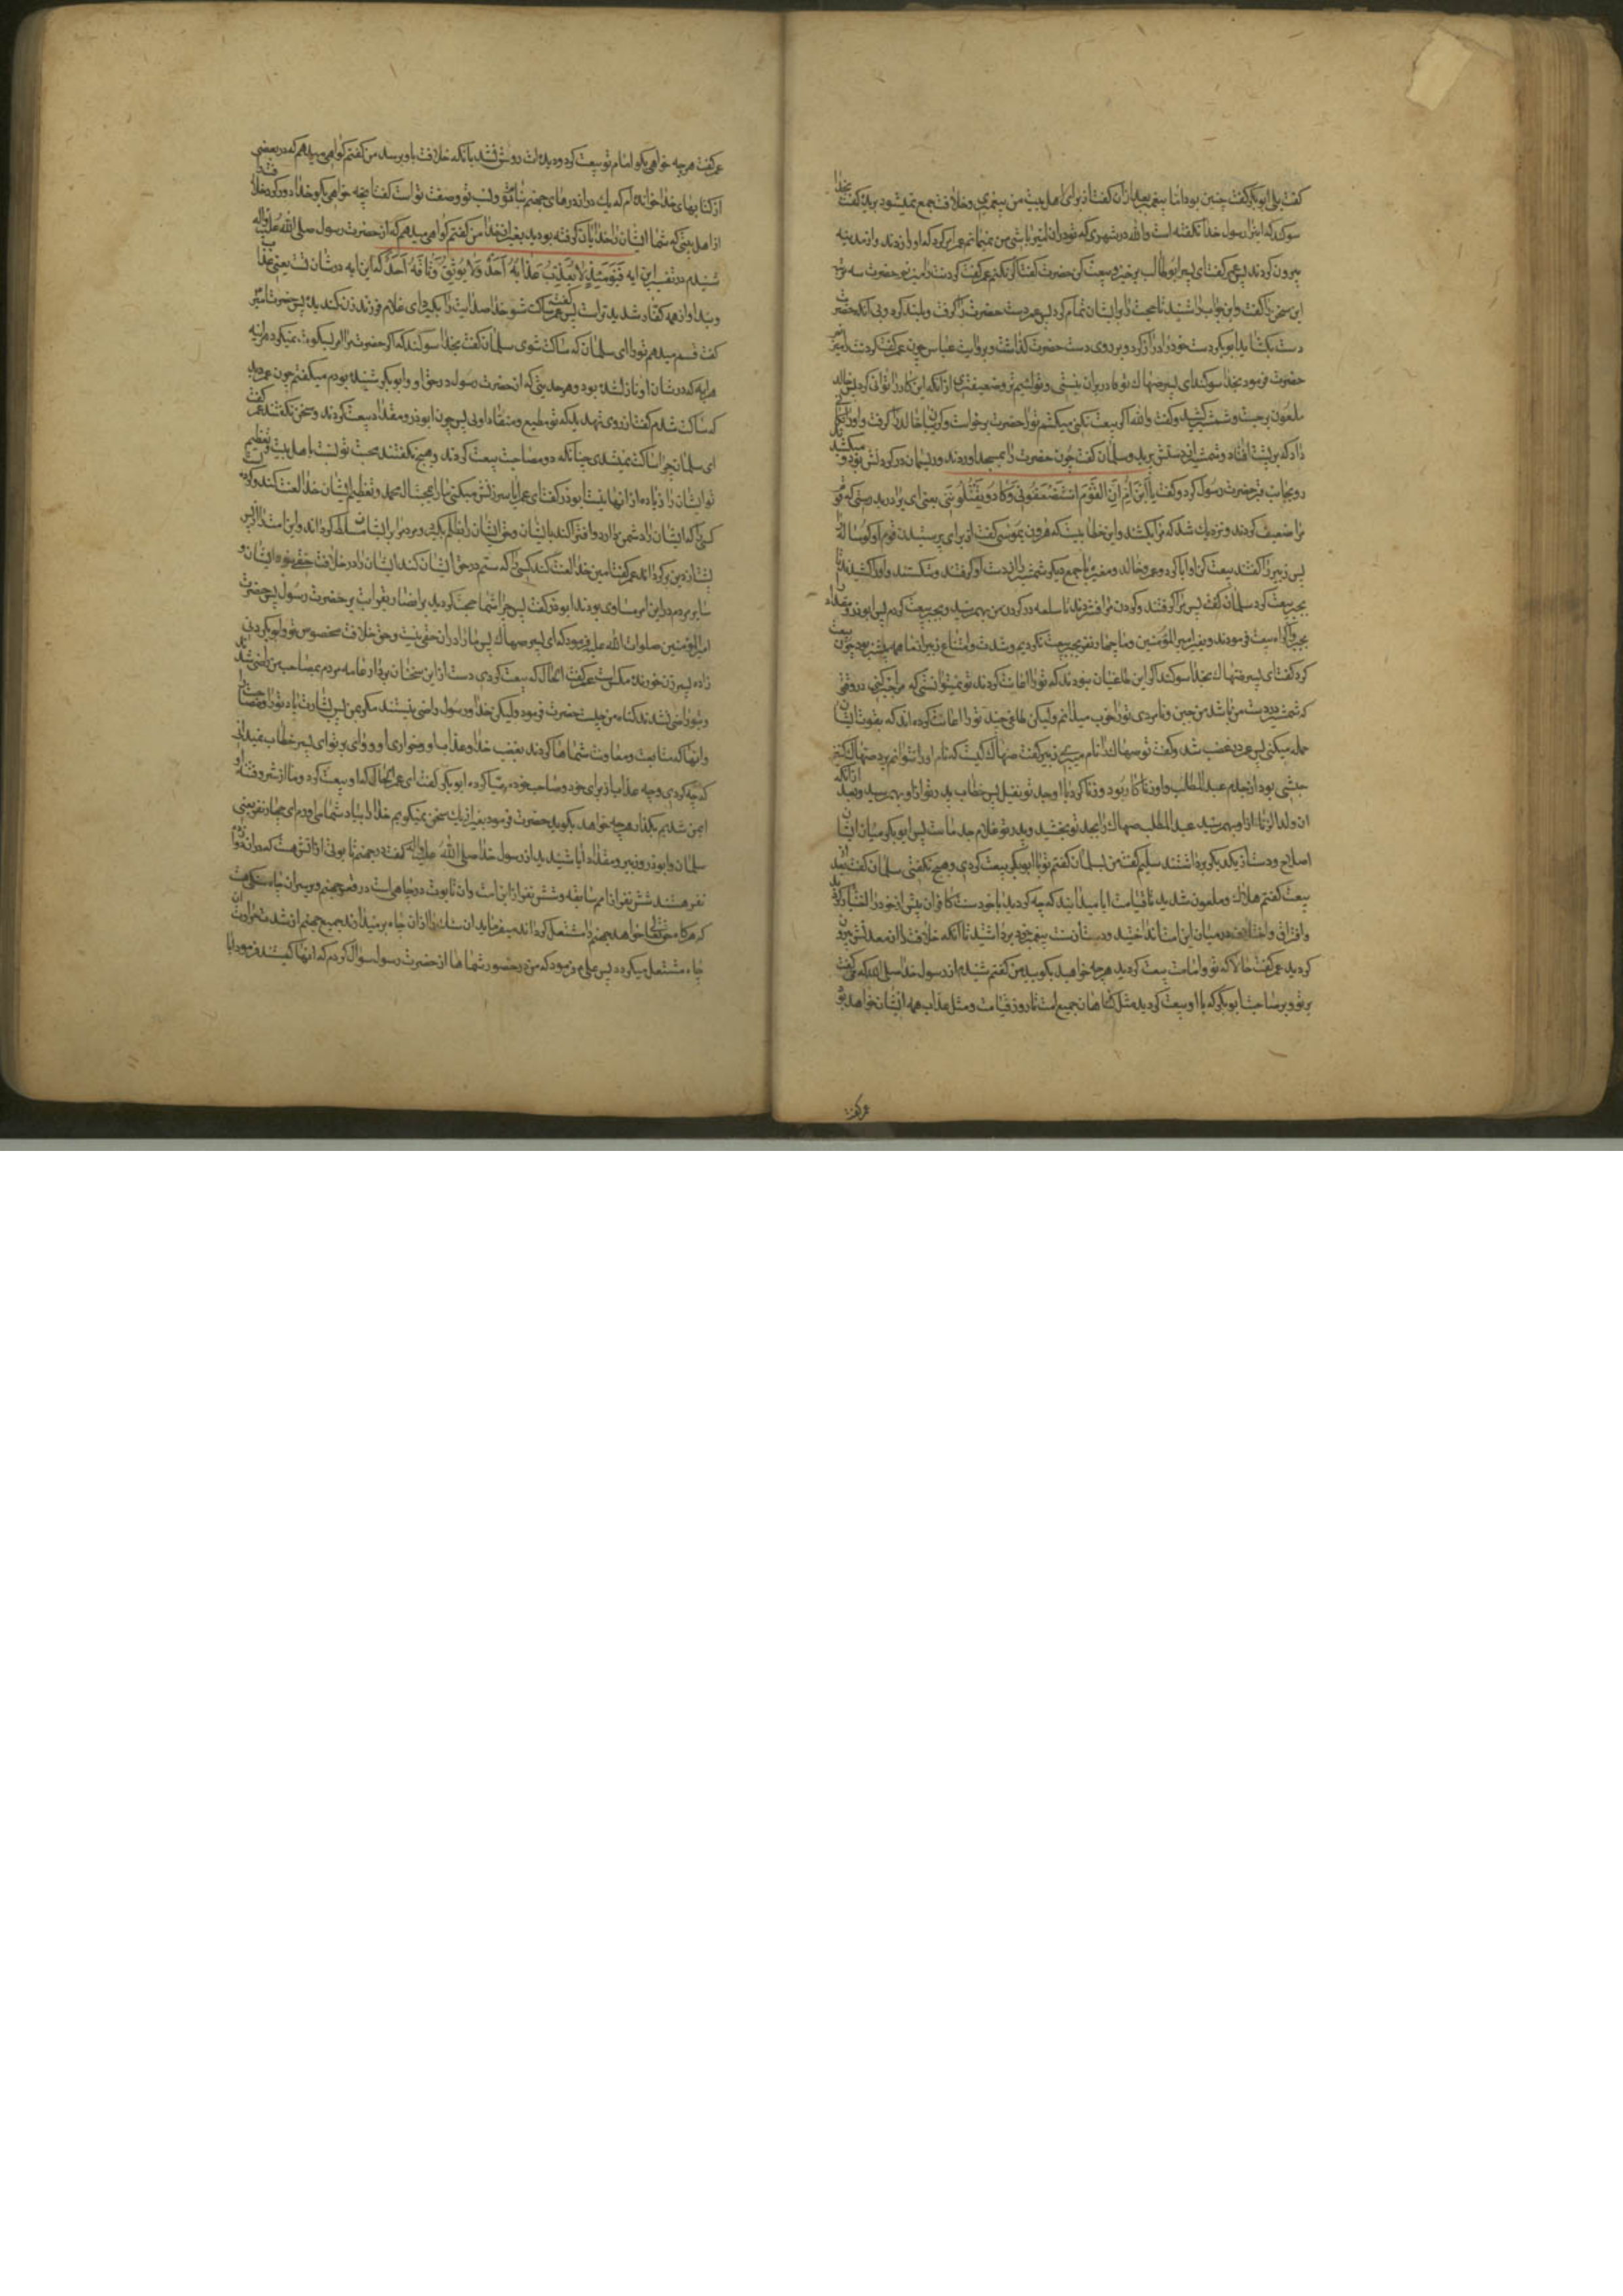 کفت بلی ابوبکر کفت چنین بود اما پیغمبر بعد ازان کفت از برای اهل بیت من پیغمبری و خلافت جمع نمیشود بریده کفت بخدا
سوکند که اینرا رسول خدا نکفته است والله در شهری که تو دران امیر باشی من نمیمانم عمر امر کرد که او را زدند و از مدینه
بیرون کردند پس عمر کفت ای پسر ابوطالب برخیز و بیعت کن حضرت کفت اکر نکنم عمر کفت کردنت را میزنم حضرت سه مرتبه
این سخن را کفت و این جواب را شنید تا حجت را بر ایشان تمام کرد پس عمر دست حضرت را کرفت و بلند کرد و بی آنکه حضرت
دست بکشاید ابوبکر دست خود را دراز کرد و بر روی دست حضرت کذاشت و بروایت عباس چون عمر کفت کردنت را میزنم
حضرت فرمود بخدا سوکند ای پسر ضهاک تو قادر بران نیستی و تو لئیم تر و ضعیفتری ازانکه این کار را توانی کرد پس خالد
ملعون برجست و شمشیر کشید و کفت والله اکر بیعت نکنی میکشم ترا حضرت برخواست و کریبان خالد را کرفت و او را
داد که بر پشت افتاد و شمشیر از دستش پرید و سلمان کفت چون حضرت را بمسجد اوردند و ریسمان در کردنش بود و
رو بجانب قبر حضرت رسول کرد و کفت یا ابن ام ان القوم استضعفونی و کادوا یقتلوننی یعنی ای برادر بدرستی که قوم
مرا ضعیف کردند و نزدیک شد که مرا بکشند و این خطابیست که هرون بموسی کفت از برای پرستیدن قوم او کوساله را
پس زبیر را کفتند بیعت کن او ابا کرد و عمر و خالد و مغیره با جمع دیکر شمشیر را از دست او کرفتند و شکستند و او را کشیدند تا
بجبر بیعت کرد سلمان کفت پس مرا کرفتند و کردن مرا فشردند تا سلعه در کردن من بهم رسید و بجبر بیعت کردم پس ابوذر و مقداد
بجبر و اکراه بیعت فرمودند و بغیر امیر المؤمنین و ما چهار نفر بجبر بیعت نکردیم و شدت و امتناع زبیر از ما همه بیشتر بود چون بیعت
کرد کفت ای پسر ضهاک بخدا سوکند اکر این طاغیان نبودند که تو را اعانت کردند تو نمیتوانستی که مرا جبر کنی در وقتی
که شمشیر در دست من باشد من جبن و نامردی تو را خوب میدانم ولیکن طاغی چند تو را اعانت کرده اند که بقوت ایشان
حمله میکنی پس عمر در غضب شد و کفت تو ضهاک را نام میبری زبیر کفت ضهاک کیست که نام او را نتوانم برد ضهاک کنیز
حبشی بود از جدم عبد المطلب و او زناکار بود و زنا کرد با او جد تو نفیل پس خطاب پدر تو از او بهم رسید و بعد ازانکه
ان ولد الزنا از او بهم رسید عبد المطلب ضهاک را بجد تو بخشید و پدر تو غلام جد ماست پس ابوبکر میان ایشان
اصلاح و دست از یکدیکر برداشتند سلیم کفت من بسلمان کفتم تو با ابوبکر بیعت کردی و هیچ نکفتی سلمان کفت بعد از
بیعت کفتم هلاک و ملعون شدید تا قیامت ایا میدانید که چه کردید با خود سنت کافران پیش از خود را اختیار کردید
و افتراق و اختلاف در میان این امت انداختید و دست از سنت پیغمبر خود برداشتید تا انکه خلافت را از معدنش بیرون
کردید عمر کفت حالا که تو و امامت بیعت کردید هر چه خواهید بکویید من کفتم شنیدم از رسول خدا صلی الله که میکفت
بر تو و بر صاحبت ابوبکر که با او بیعت کردید مثل کناهان جمیع امت تا روز قیامت و مثل عذاب همه ایشان خواهد بود
عمر کفت
عمر کفت هر چه خواهی بکو امام تو بیعت کرد و دیده ات روشن نشد بآنکه خلافت باو برسد من کفتم کواهی میدهم که در بعضی
از کتابهای خدا خوانده ام که یک در از درهای جهنم بنام تو و نسب تو و صفت تو است کفت هر چه خواهی بکو خدا دور کرد خلافت را
از اهل بیتی که شما ایشان را خدایان کرفته بودید بغیر از خدا من کفتم کواهی میدهم که از حضرت رسول صلی الله علیه واله
شنیدم در تفسیر این ایه فیومئذ لا یعذب عذابه احد ولا یوثق وثاقه احد که این ایه در شان تست یعنی عذاب
و بند او از همه کفار شدیدتر است پس عمر کفت ساکت شو خدا صدایت را بکیرد ای غلام فرزند زن کندیده پس حضرت امیر
کفت قسم میدهم تو را ای سلمان که ساکت شوی سلمان کفت بخدا سوکند که اکر حضرت مرا امر بسکوت نمیکرد هر اینه
هر ایه که در شان او نازل شده بود و هر حدیثی که از حضرت رسول در حق او و ابوبکر شنیده بودم میکفتم چون عمر دید
که ساکت شدم کفت از روی تهدید که تو مطیع و منقاد اوئی پس چون ابوذر و مقداد بیعت کردند و سخن نکفتند عمر کفت
ای سلمان چرا ساکت نمیشدی چنانکه دو مصاحبت بیعت کردند و هیچ نکفتند محبت تو نسبت باهل بیت و تعظیم
تو ایشان را زیاده از انها نیست ابوذر کفت ای عمر ایا سرزنش میکنی ما را بمحبت ال محمد و تعظیم ایشان خدا لعنت کند و کرده
کسی را که ایشان را دشمن دارد و افترا کند بایشان و حق ایشان را بظلم بکیرد و مردم را بر ایشان مسلط کرداند و این امت را از پس
پشت از دین برکرداند عمر کفت امین خدا لعنت کند کسی را که ستم در حق ایشان کند ایشان را در خلافت حقی نبوده ایشان و
سایر مردم در این امر مساوی بودند ابوذر کفت پس چرا شما حجت کردید بر انصار بقرابت بر حضرت رسول پس حضرت
امیر المؤمنین صلوات الله علیه فرمود که ای پسر ضهاک پس ما را در ان حقی نیست و حق خلافت مخصوص تو و ابوبکر
زاده پسر زن خورنده مکس است عمر کفت الحال که بیعت کردی دست از این سخنان بردار عامه مردم بمصاحب من راضی شدند
و بتو راضی نشدند کناه من چیست حضرت فرمود ولیکن خدا و رسول راضی نیستند مکر بمن پس بشارت باد تو را و مصاحبت را
و انها که متابعت و معاونت شما ها کردند بغضب خدا و عذاب او و خواری او و وای بر تو ای پسر خطاب نمیدانی
که چه کردی و چه عذاب از برای خود و صاحب خود مهیا کرده ابوبکر کفت ای عمر الحال که او بیعت کرد و ما از شر و فتنه او
ایمن شدیم بکذار هر چه خواهد بکوید حضرت فرمود بغیر از یک سخن نمیکویم خدا را بیاد شما می اورم ای چهار نفر یعنی
سلمان و ابوذر و زبیر و مقداد ایا شنیدید از رسول خدا صلی الله علیه واله کفت در جهنم تابوتی از اتش هست که دران دوازده
نفر هستند شش نفر از امم سابقه و شش نفر از این امت و ان تابوت در چاهی است در قعر جهنم و بر سر ان چاه سنکی هست
که هرکاه حق تعالی خواهد جهنم را مشتعل کرداند میفرماید ان سنک را از ان چاه برمیدارند جمیع جهنم از شدت حرارت ان
چاه مشتعل میکردد پس علی ع فرمود که من در حضور شما ها از حضرت رسول سؤال کردم که انها کیستند فرمود اما